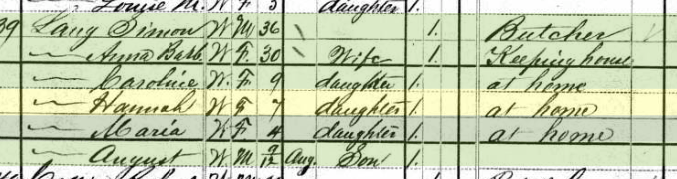 Louise M. W F 3 daughter 1.
39 Lang Simon W M 36 1. Butcher
— Anna Barb. W F. 30 Wife 1. Keeping house
— Caroline W. F. 9 daughter 1. at home
— Hannah W F 7 daughter 1. at home
— Maria W F 4 daughter 1. at home
— August W M 9/12 Aug. Son 1.